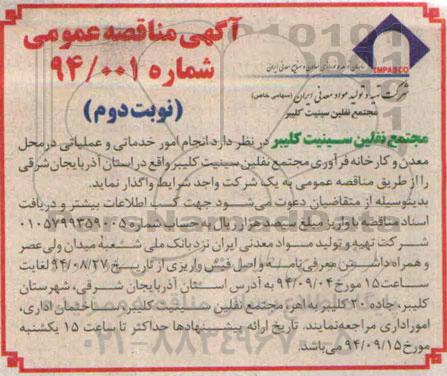 آگهی مناقصه عمومی
شماره ۹۴/۰۰۱
(نوبت دوم)
IMPASCO
شرکت تهیه و تولید مواد معدنی ایران (سهامی خاص)
مجتمع نفلین سینیت کلیبر
مجتمع نفلین سینیت کلیبر در نظر دارد انجام امور خدماتی و عملیاتی در محل
معدن و کارخانه فرآوری مجتمع نفلین سینیت کلیبر واقع در استان آذربایجان شرقی
را از طریق مناقصه عمومی به یک شرکت واجد شرایط واگذار نماید.
بدینوسیله از متقاضیان دعوت می‌شود جهت کسب اطلاعات بیشتر و دریافت
اسناد مناقصه با واریز مبلغ سیصد هزار ریال به حساب شماره ۰۱۰۵۷۹۹۳۵۹۰۰۵
شرکت تهیه و تولید مواد معدنی ایران نزد بانک ملی شعبه میدان ولی عصر
و همراه داشتن معرفی نامه و اصل فیش واریزی از تاریخ ۹۴/۰۸/۲۷ لغایت
ساعت ۱۵ مورخ ۹۴/۰۹/۰۴ به آدرس استان آذربایجان شرقی، شهرستان
کلیبر، جاده ۲۰ کلیبر به اهر، مجتمع نفلین سینیت کلیبر، ساختمان اداری،
امور اداری مراجعه نمایند. تاریخ ارائه پیشنهادها حداکثر تا ساعت ۱۵ یکشنبه
مورخ ۹۴/۰۹/۱۵ می‌باشد.